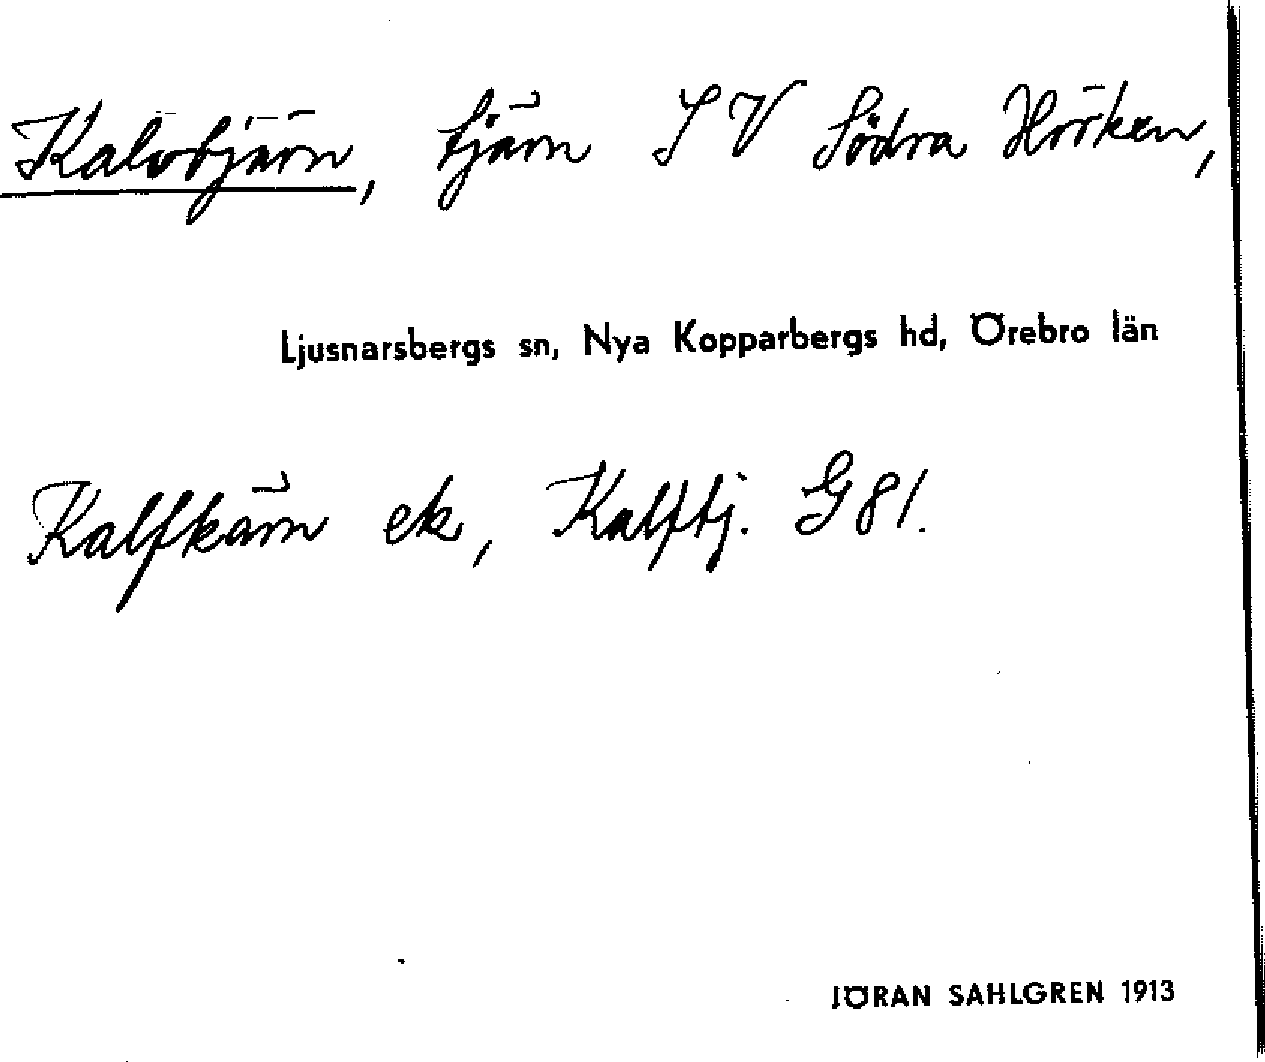 Kalvtjärn, tjärn SV Södra Hörken,
Ljusnarsbergs sn, Nya Kopparbergs hd, Örebro län
Kalfkärn ek, Kalftj. G 81.
JÖRAN SAHLGREN 1913